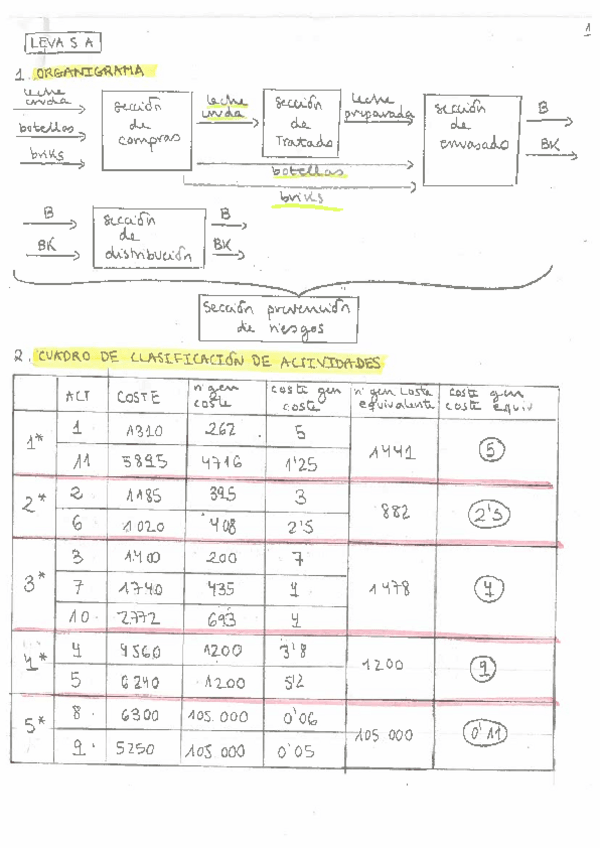 1
LEVA S A
1. ORGANIGRAMA
leche cruda
botellas
briks
sección de compras
leche cruda
sección de Tratado
leche preparada
botellas
briks
sección de envasado
B
BK
B
BK
sección de distribución
B
BK
sección prevención de riesgos
2. CUADRO DE CLASIFICACIÓN DE ACTIVIDADES
ACT COSTE nº gen coste coste gen coste nº gen coste equivalente coste gen coste equiv
1* 1 1310 262 5 1441 5
11 5895 4716 1'25
2* 2 1185 395 3 882 2'5
6 1020 408 2'5
3* 3 1400 200 7 1478 4
7 1740 435 4
10 2772 693 4
4* 4 4560 1200 3'8 1200 9
5 6240 1200 5'2
5* 8 6300 105.000 0'06 105 000 0'11
9 5250 105 000 0'05